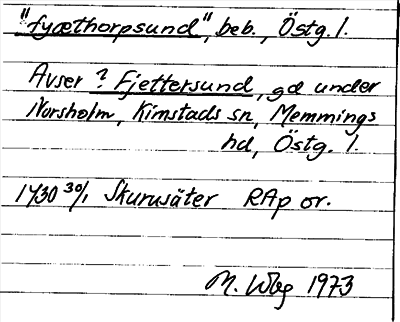 "fyæthorpsund", beb., Östg. l.
Avser ? Fjettersund, gd under
Norsholm, Kimstads sn, Memmings
hd, Östg. l.
1430 30/1 Skurusäter RAp or.
M. Wbg 1973